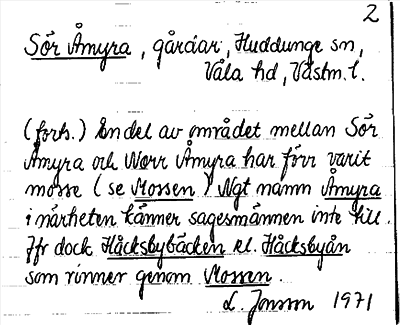 2
Sör Åmyra, gårdar, Huddunge sn,
Våla hd, Västm. l.
(forts.) En del av området mellan Sör
Åmyra och Norr Åmyra har förr varit
mosse (se Mossen) Ngt namn Åmyra
i närheten känner sagesmannen inte till.
Jfr dock Håcksbybäcken el. Håcksbyån
som rinner genom Mossen.
L. Jonson 1971